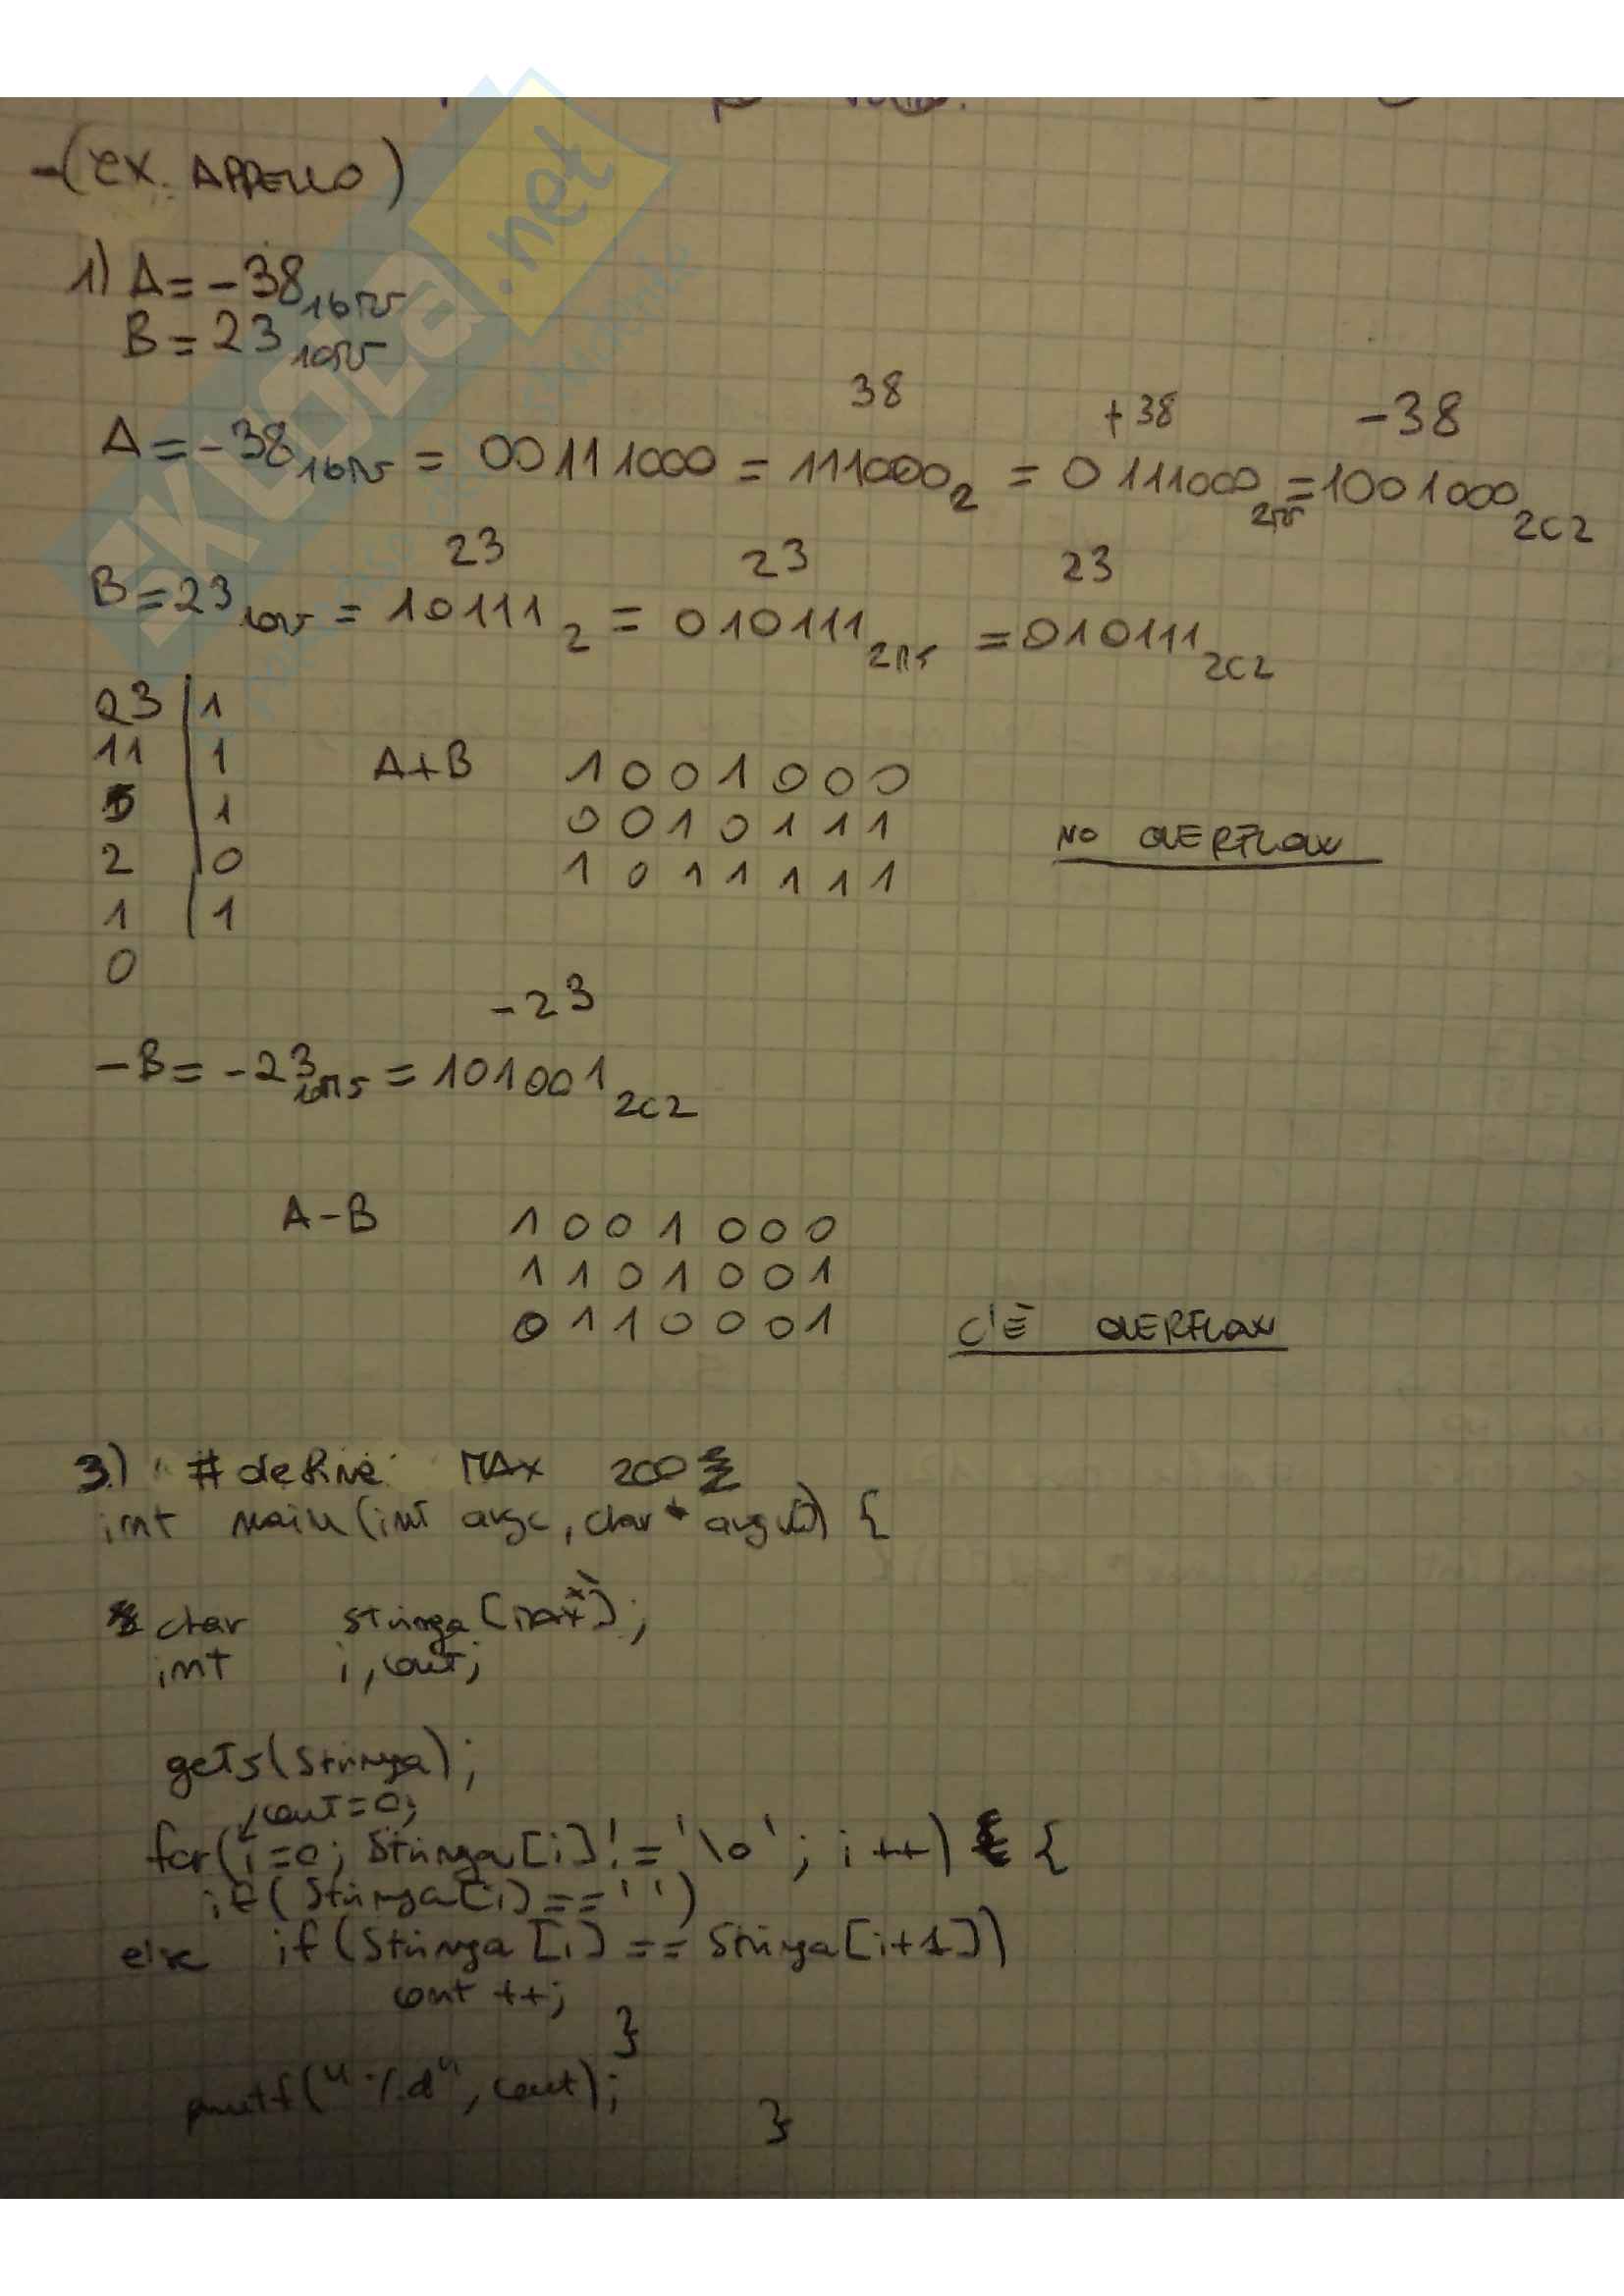 -(ex. APPELLO)
1) A = -38 16MS
B = 23 10MS
38 +38 -38
A = -38 16MS = 00111000 = 111000 2 = 0111000 2MS = 1001000 2C2
23 23 23
B = 23 10MS = 10111 2 = 010111 2MS = 010111 2C2
23 | 1
11 | 1
5 | 1
2 | 0
1 | 1
0
A+B 1 0 0 1 0 0 0
0 0 1 0 1 1 1
1 0 1 1 1 1 1
NO OVERFLOW
-23
-B = -23 10MS = 101001 2C2
A-B 1 0 0 1 0 0 0
1 1 0 1 0 0 1
0 1 1 0 0 0 1
C'È OVERFLOW
3.) #define MAX 200
int main(int argc, char * argv[]) {
char stringa[MAX];
int i, cont;
gets(stringa);
cont=0;
for(i=0; stringa[i]!='\0'; i++) {
if(stringa[i]==' ')
else if(stringa[i]==stringa[i+1])
cont++;
}
printf("%d", cont);
}
SKUOLa.net